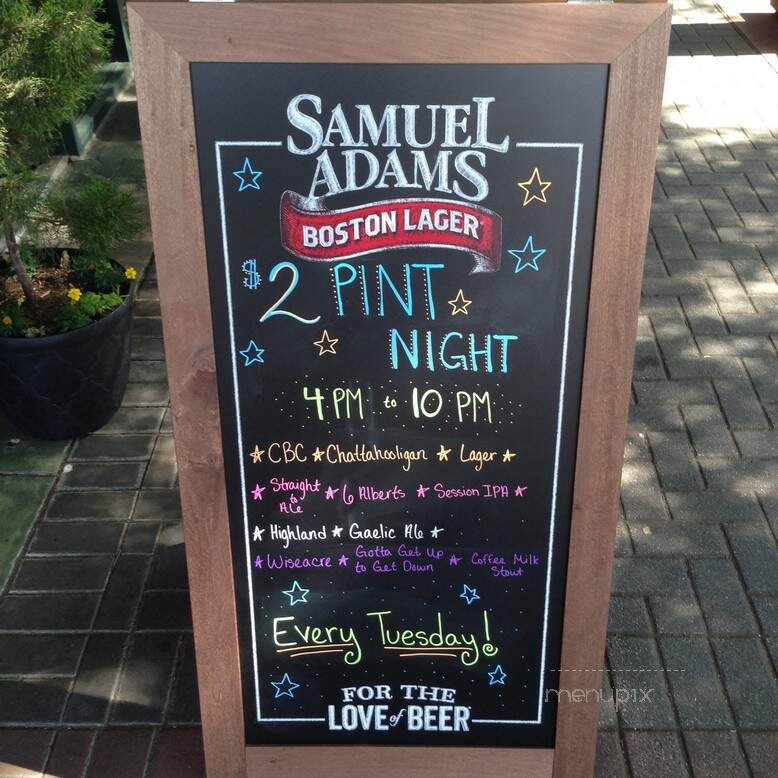 SAMUEL
ADAMS
BOSTON LAGER
$2 PINT
NIGHT
4 PM to 10 PM
CBC Chattahooligan Lager
Straight to Ale 6 Alberts Session IPA
Highland Gaelic Ale
Wiseacre Gotta Get Up to Get Down Coffee Milk Stout
Every Tuesday!
FOR THE
LOVE of BEER
menupix